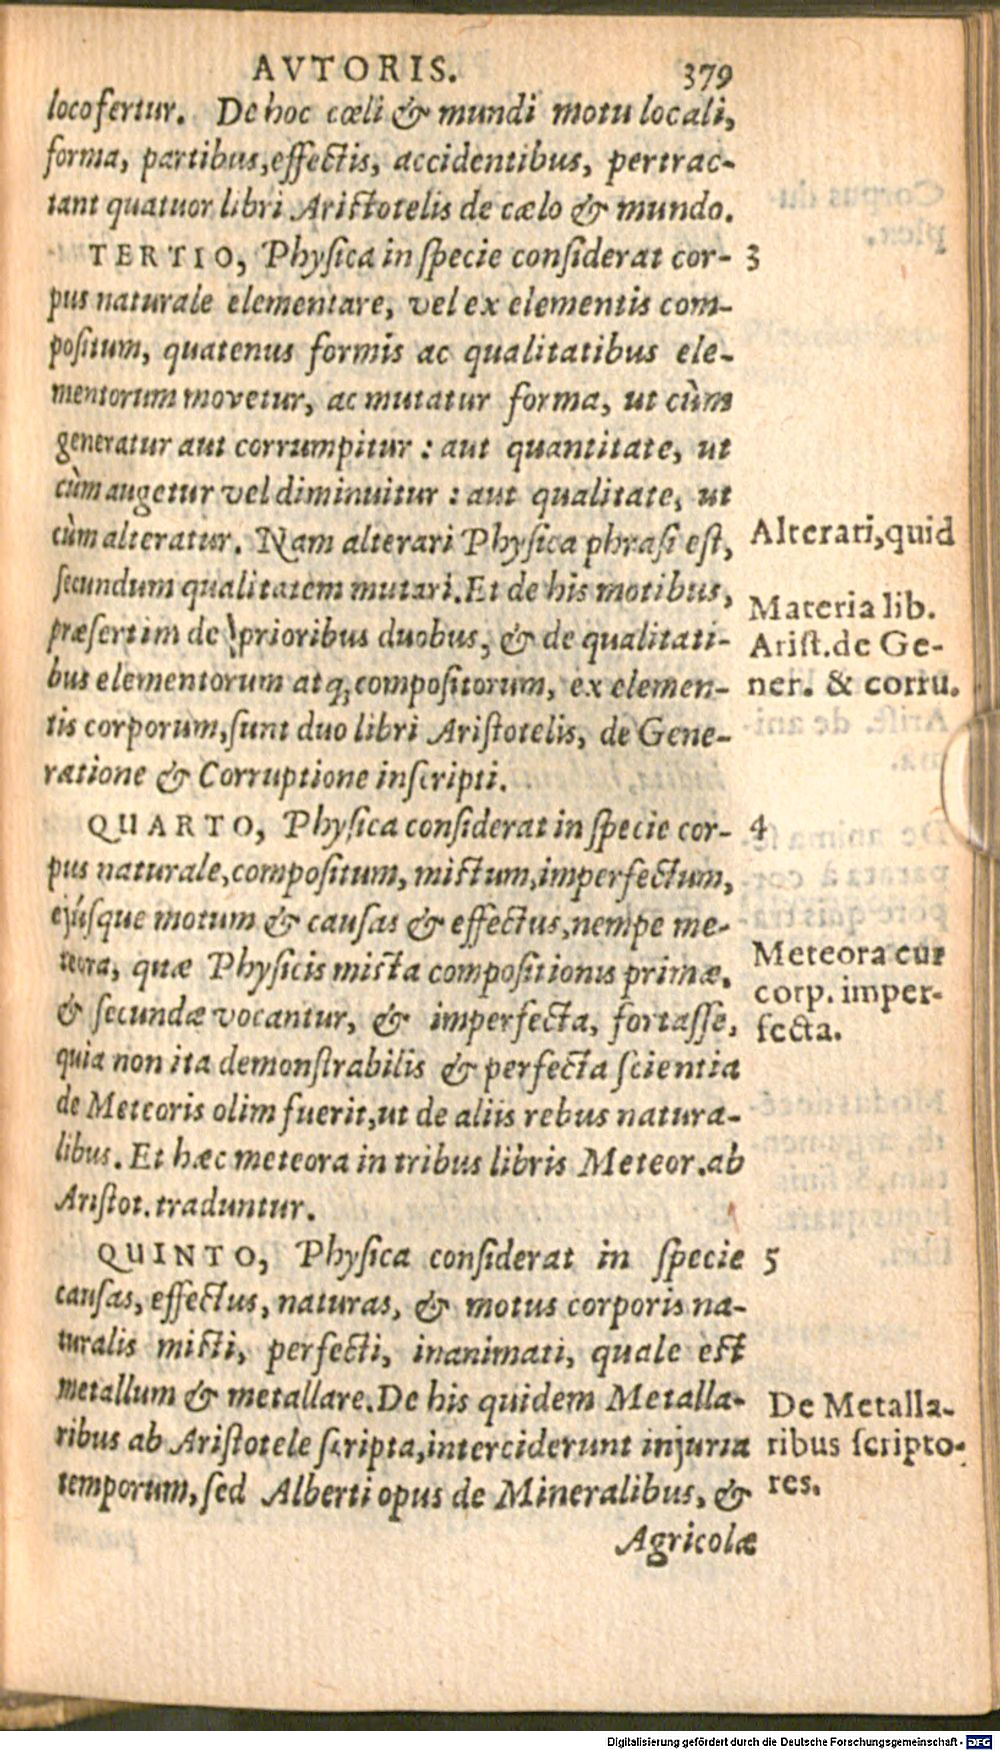 AVTORIS. 379
loco fertur. De hoc cœli & mundi motu locali,
forma, partibus, effectis, accidentibus, pertrac-
tant quatuor libri Aristotelis de cælo & mundo.
TERTIO, Physica in specie considerat cor-
pus naturale elementare, vel ex elementis com-
positum, quatenus formis ac qualitatibus ele-
mentorum movetur, ac mutatur forma, ut cùm
generatur aut corrumpitur : aut quantitate, ut
cùm augetur vel diminuitur : aut qualitate, ut
cùm alteratur. Nam alterari Physica phrasi est,
secundum qualitatem mutari. Et de his motibus,
præsertim de prioribus duobus, & de qualitati-
bus elementorum atq; compositorum, ex elemen-
tis corporum, sunt duo libri Aristotelis, de Gene-
ratione & Corruptione inscripti.
QUARTO, Physica considerat in specie cor-
pus naturale, compositum, mictum, imperfectum,
ejúsque motum & causas & effectus, nempe me-
teora, quæ Physicis mista compositionis primæ,
& secundæ vocantur, & imperfecta, fortasse,
quia non ita demonstrabilis & perfecta scientia
de Meteoris olim fuerit, ut de aliis rebus natura-
libus. Et hæc meteora in tribus libris Meteor. ab
Aristot. traduntur.
QUINTO, Physica considerat in specie
causas, effectus, naturas, & motus corporis na-
turalis micti, perfecti, inanimati, quale est
metallum & metallare. De his quidem Metalla-
ribus ab Aristotele scripta, interciderunt injuria
temporum, sed Alberti opus de Mineralibus, &
Agricolæ
3
Alterari, quid
Materia lib.
Arist. de Ge-
ner. & corru.
4
Meteora cur
corp. imper-
fecta.
5
De Metalla-
ribus scripto-
res.
Digitalisierung gefördert durch die Deutsche Forschungsgemeinschaft - DFG